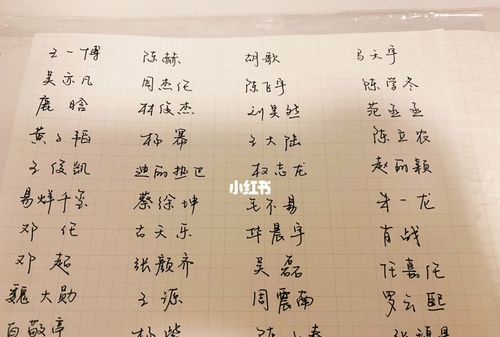 王一博 陈赫 胡歌 马天宇
吴亦凡 周杰伦 陈飞宇 陈学冬
鹿晗 林俊杰 刘昊然 范丞丞
黄子韬 杨幂 王大陆 陈立农
王俊凯 迪丽热巴 权志龙 赵丽颖
小红书
易烊千玺 蔡徐坤 毛不易 朱一龙
邓伦 古天乐 华晨宇 肖战
邓超 张颜齐 吴磊 任嘉伦
魏大勋 王源 周震南 罗云熙
白敬亭 杨紫